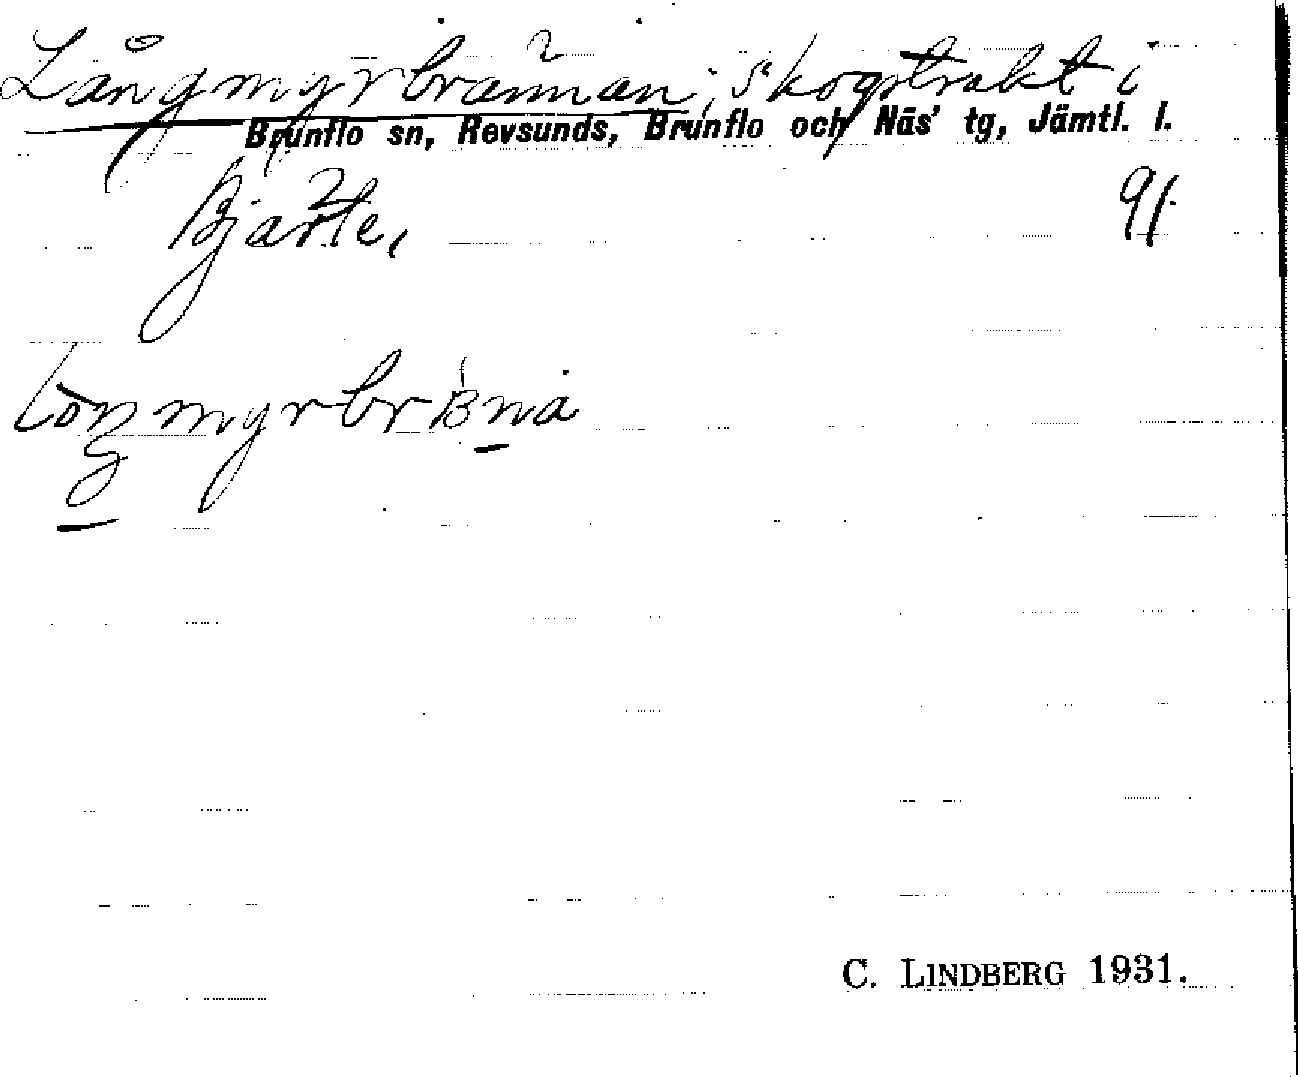 Långmyrbrännan, skogstrakt i
Brunflo sn, Revsunds, Brunflo och Näs' tg, Jämtl. l.
Bjärte, 91.
C. LINDBERG 1931.